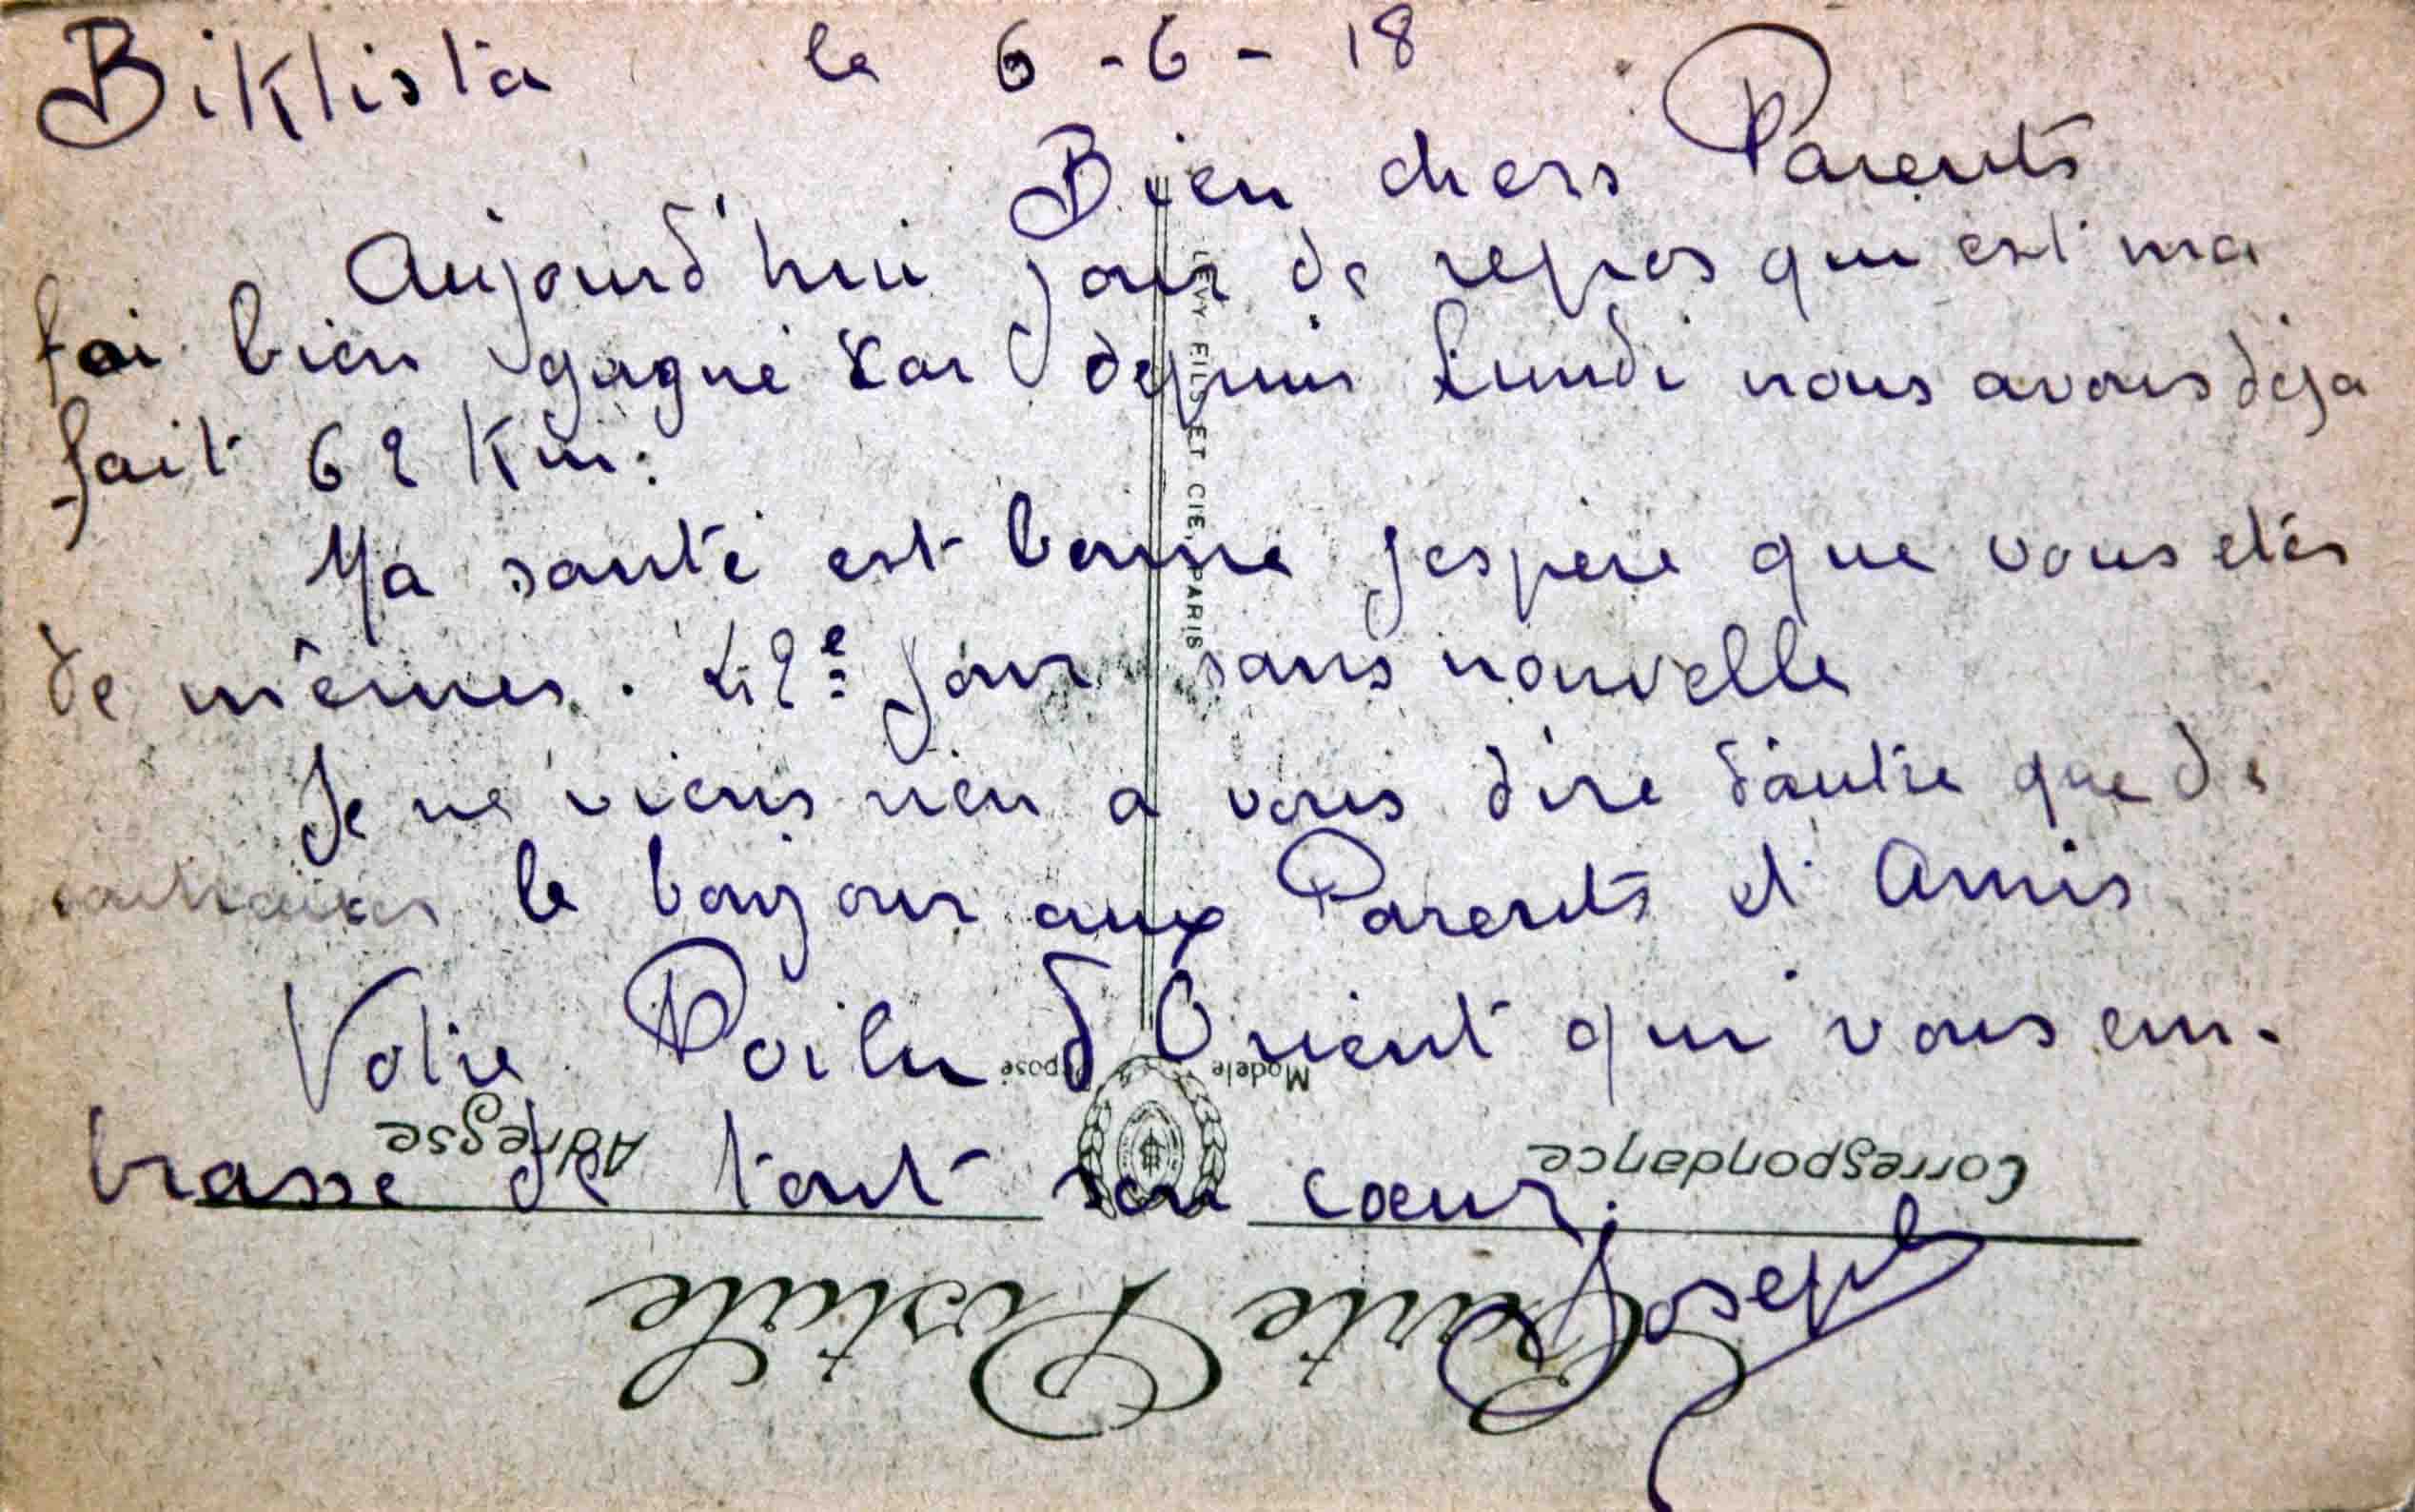 Biklista le 6-6-18
Bien chers Parents
Aujourd'hui jour de repos qui est ma
foi bien gagné car depuis Lundi nous avons déja
fait 62 Km:
Ma santé est bonne jespère que vous etes
de mêmes. 2e jour sans nouvelle
Je ne viens rien a vous dire d'autre que de
le bonjour aux Parents et Amis
Votre Poilu d'Orient qui vous em-
brasse de tout son cœur.
Joseph
LEVY FILS ET CIE, PARIS
Modele déposé
Correspondance
Adresse
Carte Postale